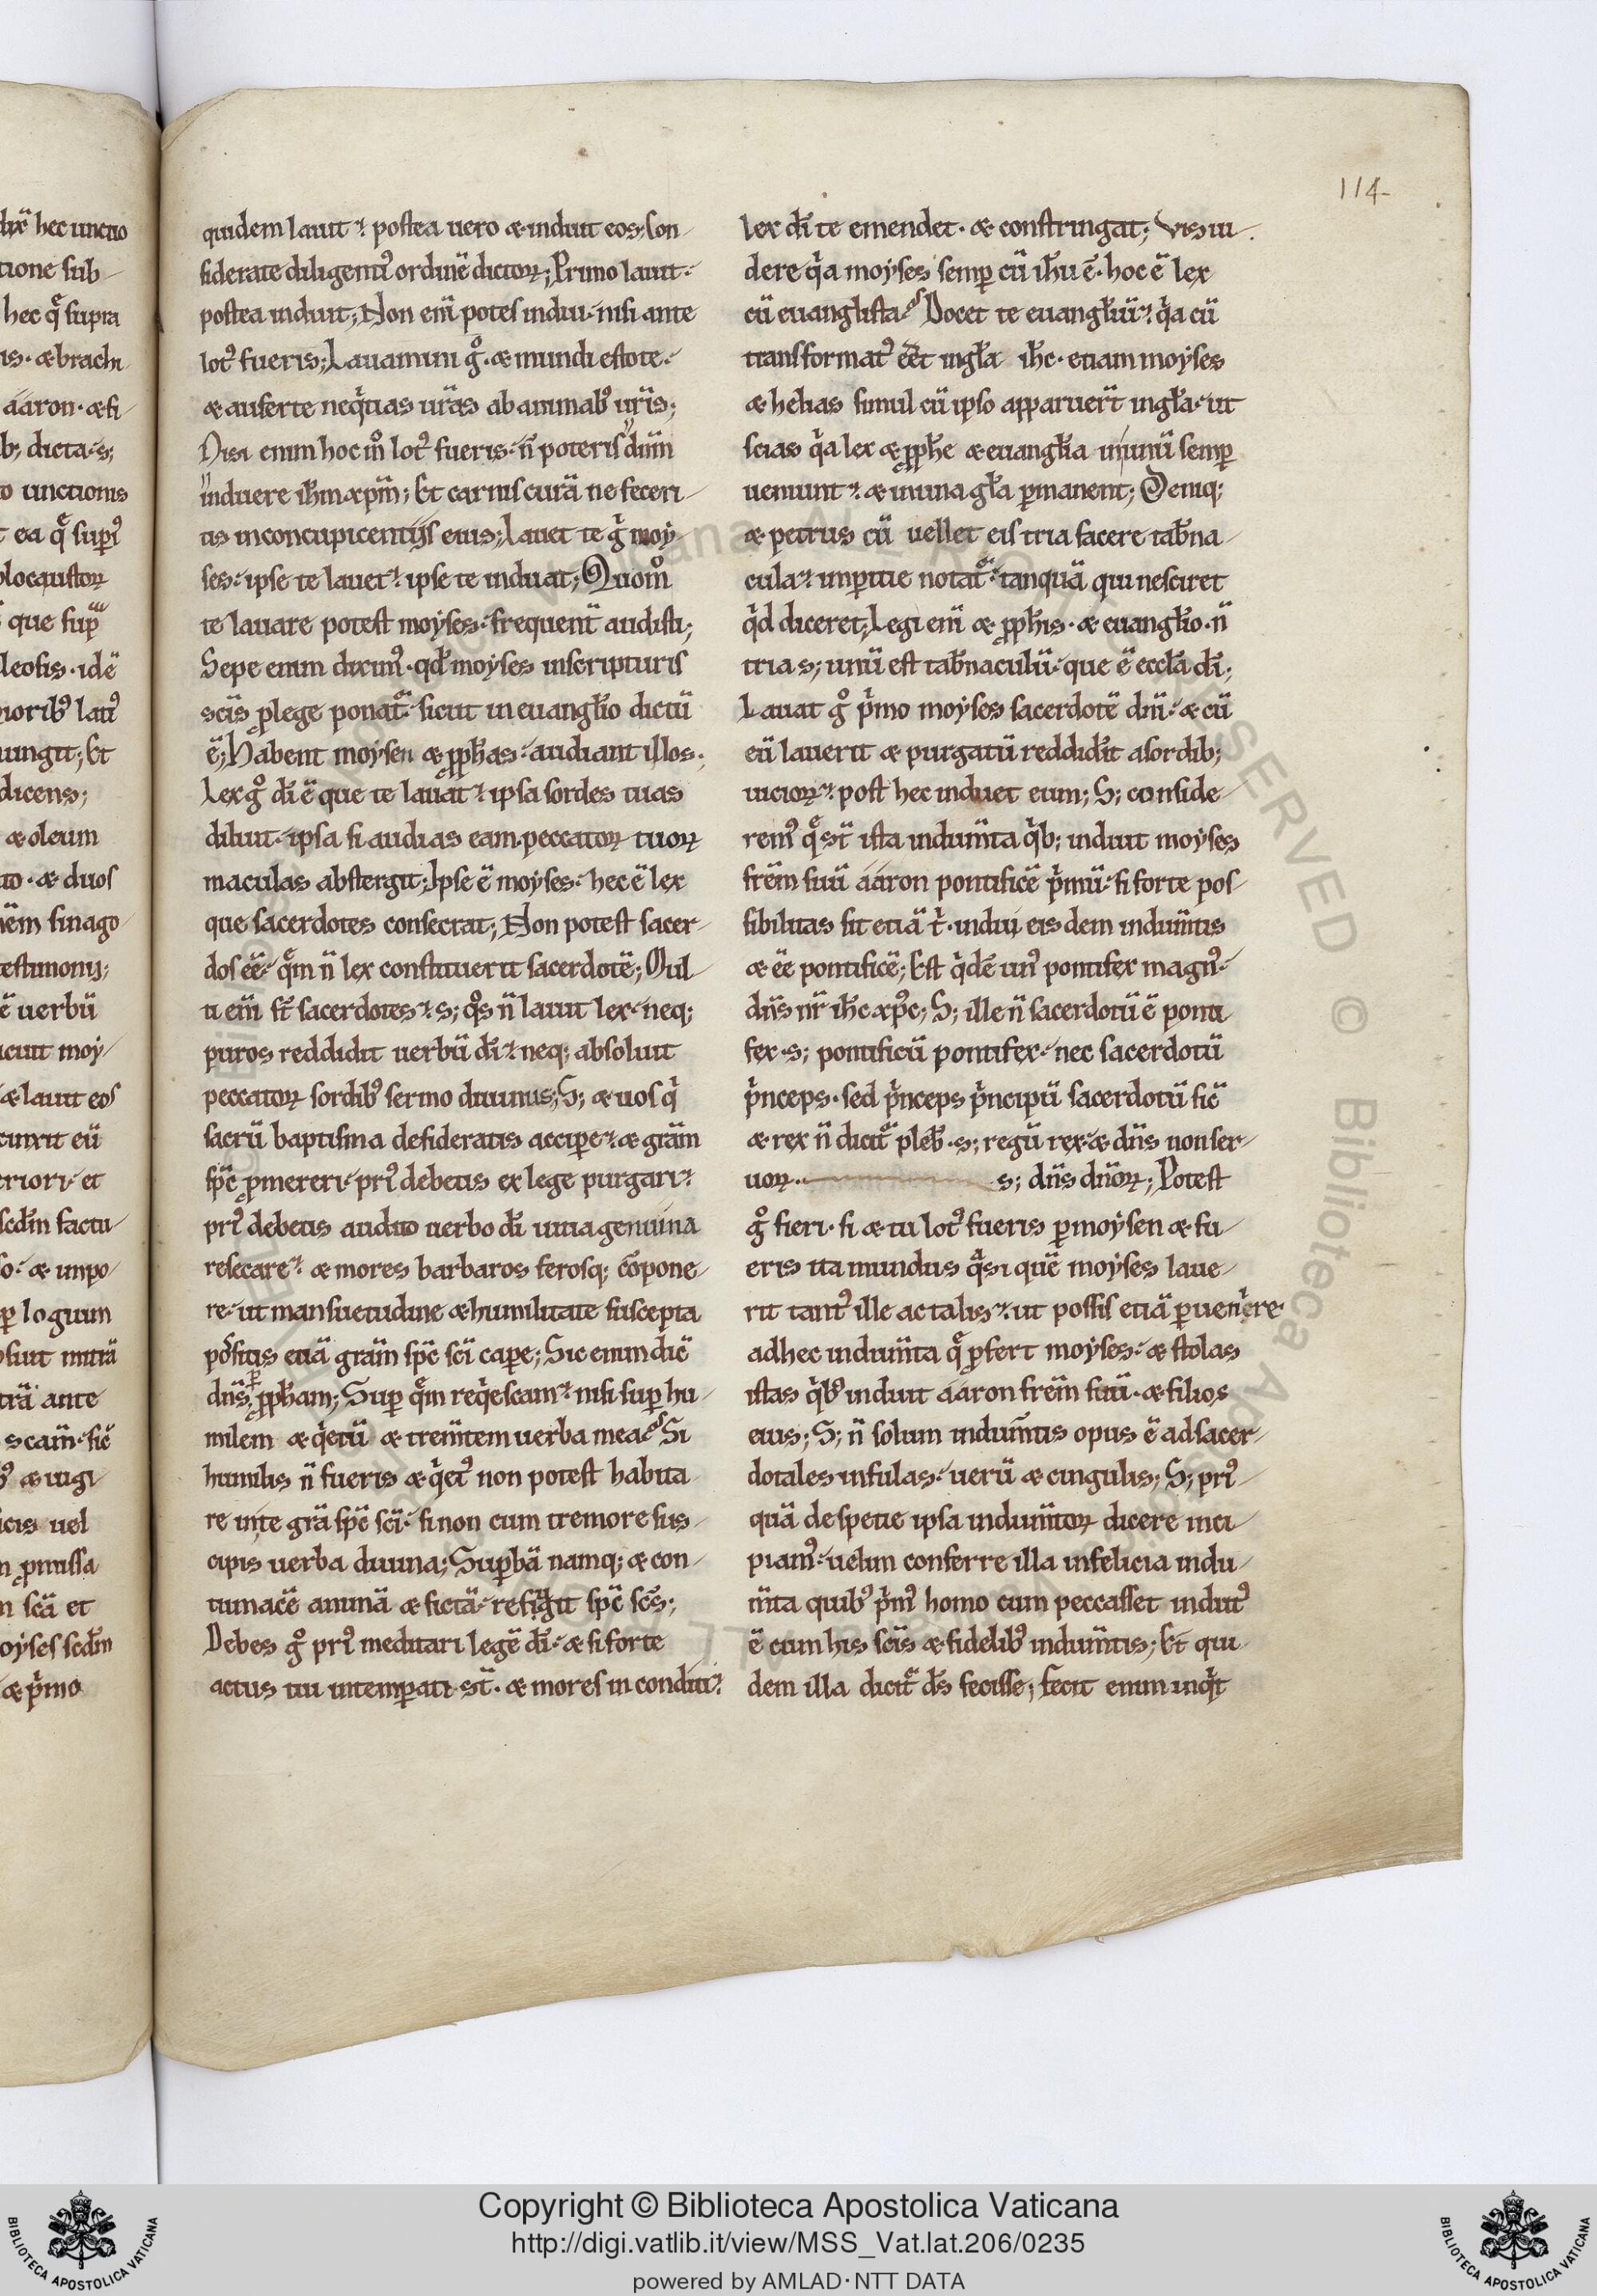 114
quidem lauit postea uero & induit eos; Con
siderate diligenti᾽ ordinē dictoꝝ; Primo lauit
postea induit; Non enī potes indui nisi ante
lot᾽ fueris; Lauamini gͦ · & mundi estote
& auferte neqͥtias ur̄as ab animab᾽ ur̄is;
Nisi enim hoc mͦ lot᾽ fueris n̄ poteris dn̄m
induere ih̄m xp̄m; Et carnis curā ne feceri
tis in concupicentiis eius; Lauet te gͦ moy
ses ipse te lauet ipse te induat; Quomͦ
te lauare potest moyses frequent̄ audisti;
Sepe enim dixim᾽ · qd̄ moyses in scripturis
sc̄is ꝓ lege ponat᷑ sicut in euangl̄io dictū
ē; Habent moysen & ꝓph̄as audiant illos;
Lex gͦ dī ē que te lauat ipsa sordes tuas
diluit ipsa si audias eam peccatoꝝ tuoꝝ
maculas abstergit; Ipse ē moyses hec ē lex
que sacerdotes consecrat; Non potest sacer
dos eē qͣm n̄ lex constituerit sacerdotē; Mul
ti em̄ st̄ sacerdotes s; qͦs n̄ lauit lex neq;
puros reddidit uerbū dī neq; absoluit
peccatoꝝ sordib᾽ sermo diuinus; S; & uos qͥ
sacrū baptisma desideratis accipe & grām
sp̄c ꝓmereri pri᾽ debetis ex lege purgari
pri᾽ debetis audito uerbo dī uitia genuina
resecare & mores barbaros ferosq; cōpone
re ut mansuetudine & humilitate suscepta
possitis etiā grām sp̄c sc̄i cape; Sic enim dic̄
dn̄s ꝑ ꝓph̄am; Suꝑ qͣm reqͥescam nisi suꝑ hu
milem & qͥetū & trem̄tem uerba mea Si
humilis n̄ fueris & qͥet᾽ non potest habita
re in te grā sp̄c sc̄i si non cum tremore sus
cipis uerba diuina; Suꝑbā namq; & con
tumacē animā & fictā refugit sp̄c sc̄s;
Debes gͦ pri᾽ meditari legē dī & si forte
actus tui intemꝑati st̄ · & mores inconditi
lex dī te emendet · & constringat; Vis ui
dere qͥa moyses semꝑ cū ih̄u ē · hoc ē lex
cū euanglista Docet te euangl̄iū qͥa cū
transformat᾽ eēt in gl̄a ih̄c · etiam moyses
& helias simul cū ipso apparuer̄t in gl̄a ut
scias qͥa lex & ꝓph̄e & euangl̄ia in unū semꝑ
ueniunt & in una gl̄a ꝑmanent; Deniq;
& petrus cū uellet eis tria facere tab̄na
cula imꝑitie notat᷑ tanquā qui nesciret
qͥd diceret; Legi em̄ & ꝓph̄is · & euangl̄io · n̄
tria s; unū est tab̄naculū que ē eccl̄a dī;
Lauat gͦ pͥmo moyses sacerdotē dn̄i & cū
eū lauerit & purgatū reddid̄it a sordib;
uicioꝝ post hec induet eum; S; conside
rem᾽ qͣ st̄ ista indum̄ta qͥb; induit moyses
frēm suū aaron pontificē pͥmū si forte pos
sibilitas sit etiā tͥ · indui eisdem indum̄tis
& eē pontificē; Est qͥdē un᾽ pontifex magn᾽
dn̄s nr̄ ih̄c xp̄c; S; ille n̄ sacerdotū ē ponti
fex s; pontificū pontifex nec sacerdotū
pͥnceps · sed pͥnceps pͥncipū sacerdotū sic̄
& rex n̄ dicit᷑ pleb̄ · s; regū rex & dn̄s non ser
uoꝝ s; dn̄s dn̄oꝝ; Potest
gͦ fieri · si & tu lot᾽ fueris ꝑ moysen & fu
eris ita mundus qͣsi quē moyses laue
rit tant᾽ ille ac talis ut possis etiā ꝑuenire
ad hec indum̄ta qͣ ꝓfert moyses & stolas
istas qͥb᾽ induit aaron frēm suū · & filios
eius; S; n̄ solum indum̄tis opus ē ad sacer
dotales infulas uerū & cingulis; S; pri᾽
quā de spetie ipsa indum̄toꝝ dicere inci
piam᾽ uelim conferre illa infelicia indu
m̄ta quib᾽ pͥm᾽ homo cum peccasset indut᾽
ē cum his sc̄is & fidelib᾽ indum̄tis; Et qui
dem illa dicit᷑ d̄s fecisse; fecit enim inqͥt
Copyright © Biblioteca Apostolica Vaticana
http://digi.vatlib.it/view/MSS_Vat.lat.206/0235
powered by AMLAD · NTT DATA
BIBLIOTECA APOSTOLICA VATICANA
BIBLIOTECA APOSTOLICA VATICANA